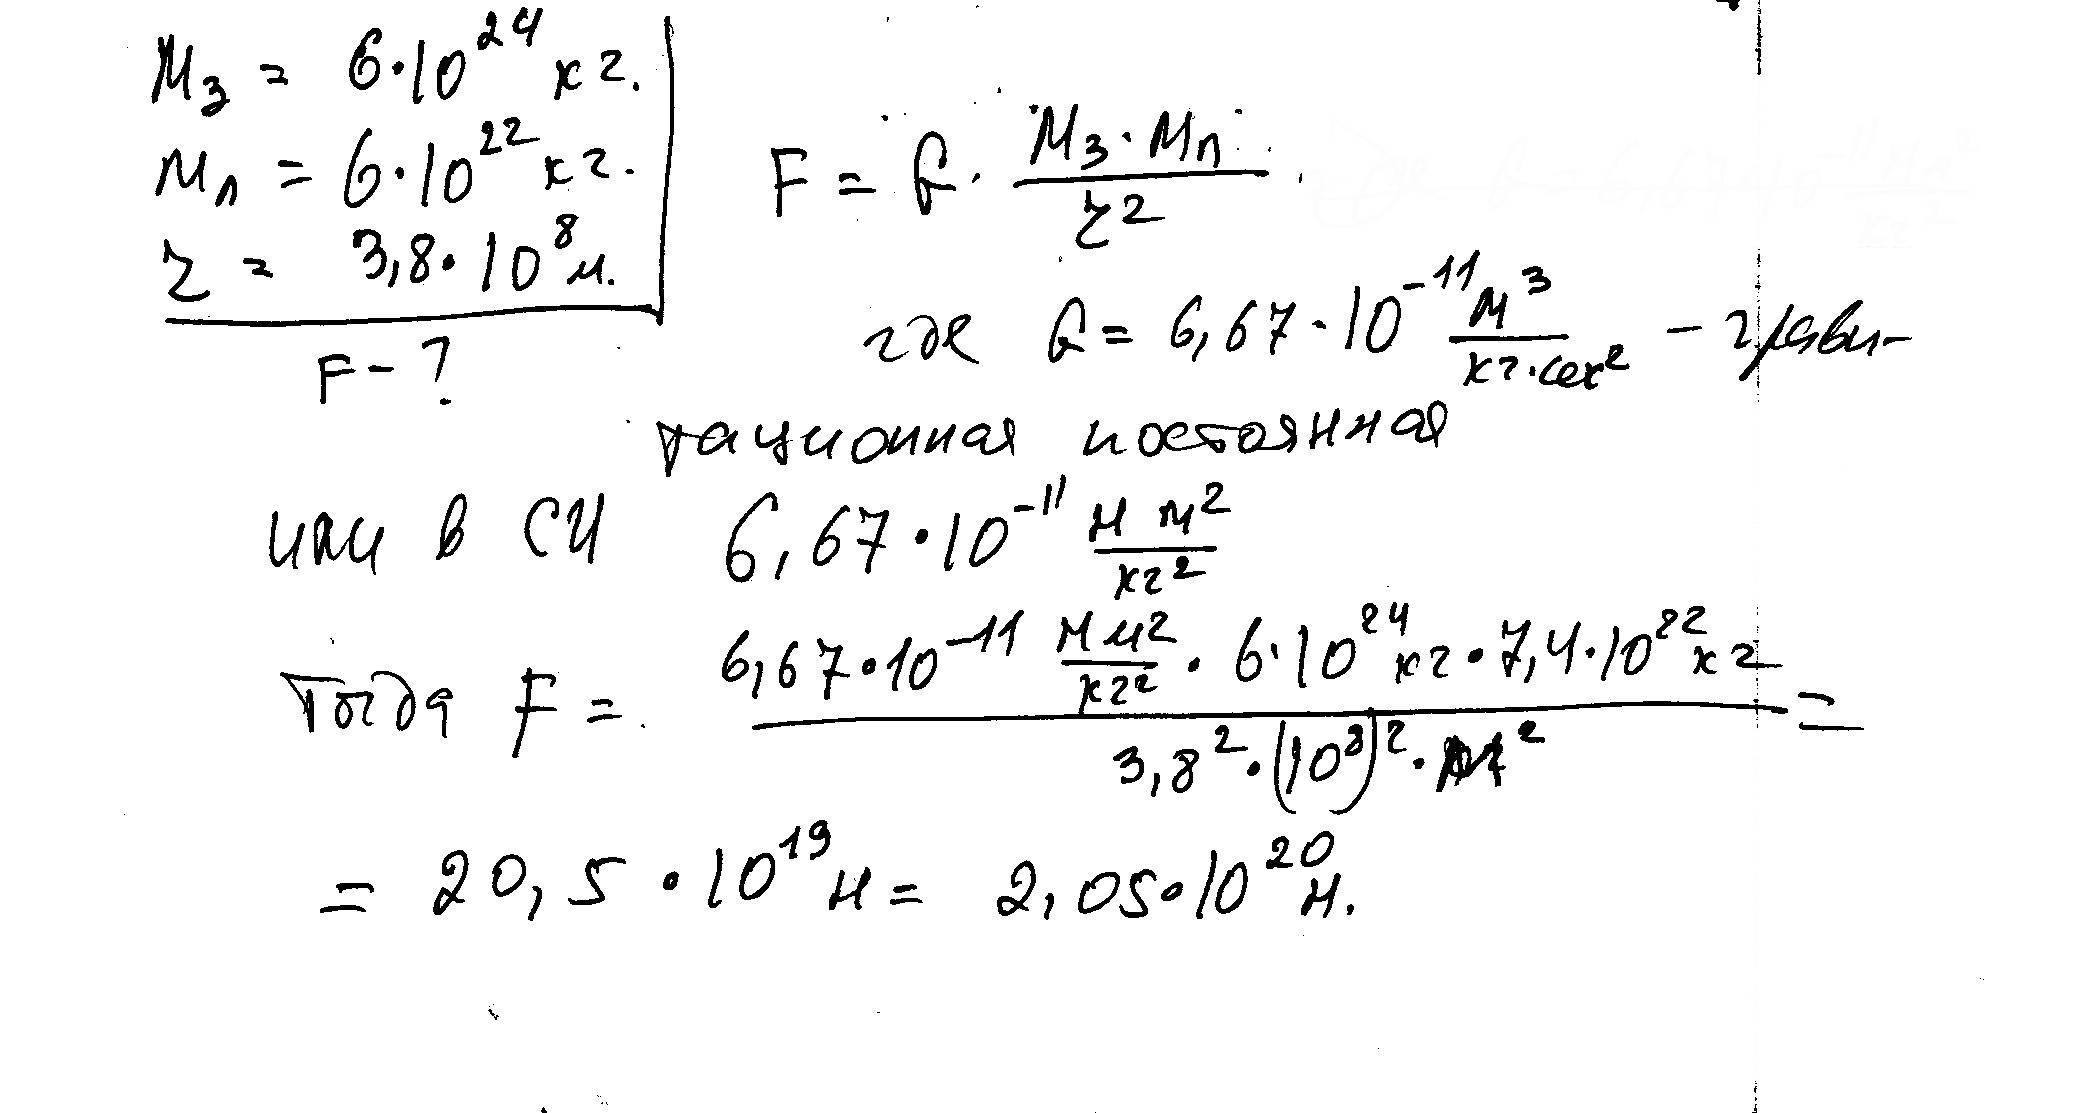 Mз = 6·10²⁴ кг.
Mл = 6·10²² кг.
r = 3,8·10⁸ м.
F - ?
F = G · Mз · Mл / r²
где G = 6,67·10⁻¹¹ м³ / кг·сек² - грави-
тационная постоянная
или в СИ 6,67·10⁻¹¹ Н м² / кг²
Тогда F = 6,67·10⁻¹¹ Н м² / кг² · 6·10²⁴ кг · 7,4·10²² кг / 3,8² · (10⁸)² · м² =
= 20,5 · 10¹⁹ Н = 2,05·10²⁰ Н.